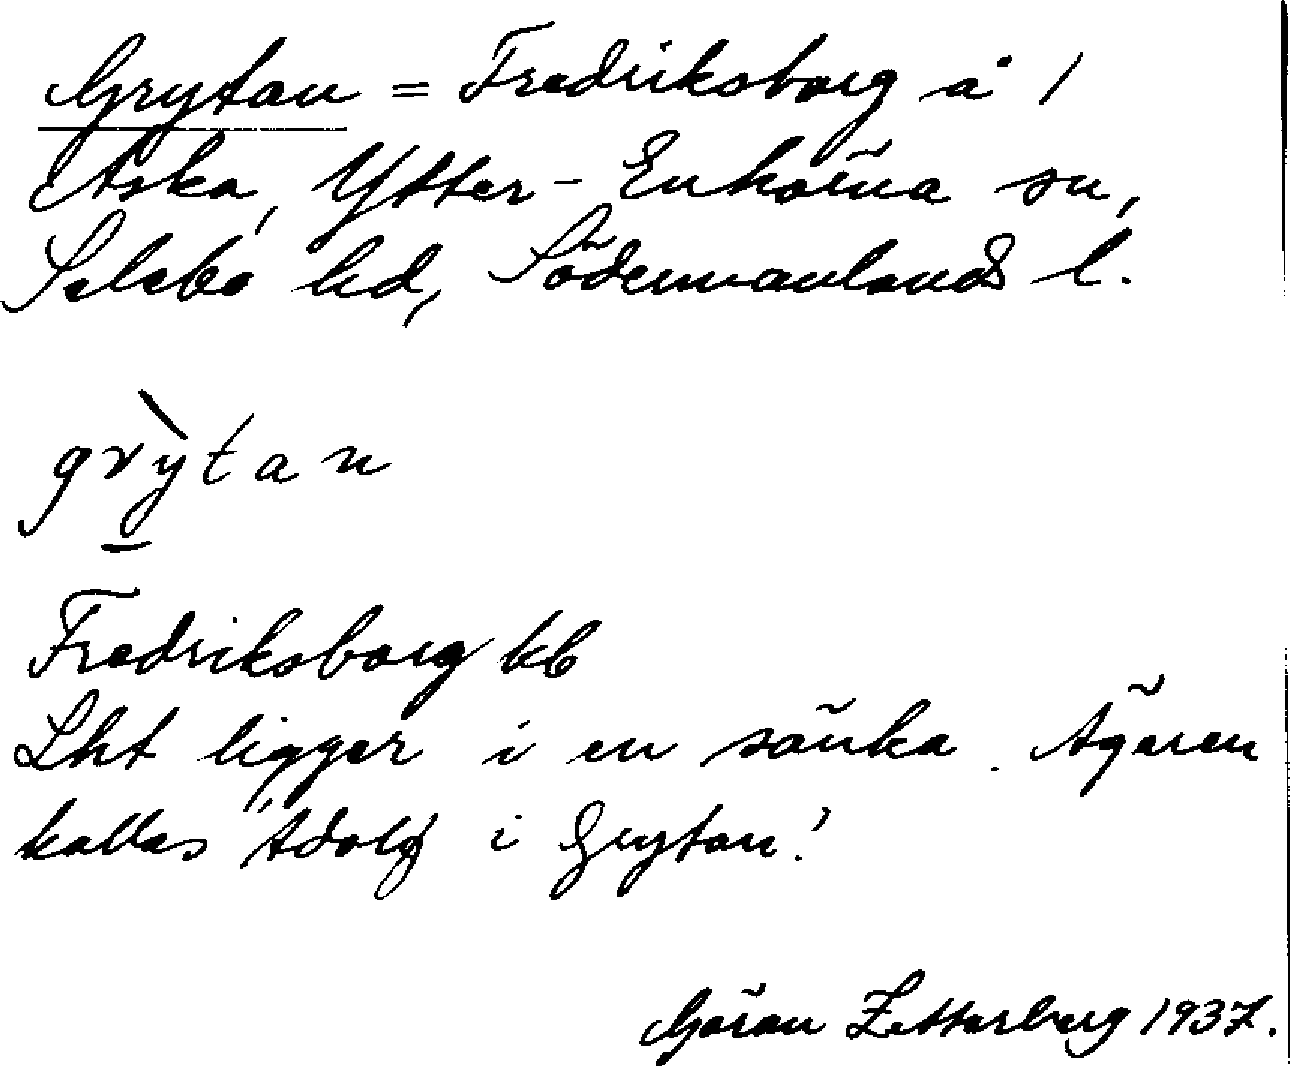 Grytan = Fredriksborg å /
Aska, Ytter-Enhörna sn,
Selebo hd, Södermanlands l.
grỳtan
Fredriksborg kb
Lht ligger i en sänka. Ägaren
kallas "Adolf i Grytan".
Göran Zetterberg 1937.